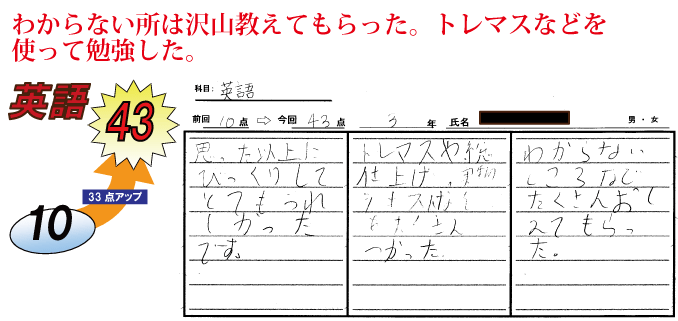 わからない所は沢山教えてもらった。トレマスなどを
使って勉強した。
英語
43
33点アップ
10
科目: 英語
前回 10点 ⇨ 今回 43点 3年 氏名 男・女
思った以上に
びっくりして
とてもうれ
しかった
です。
トレマスや総
仕上げ、
をたくさん
つかった。
わからない
ところなど
たくさんおし
えてもらっ
た。